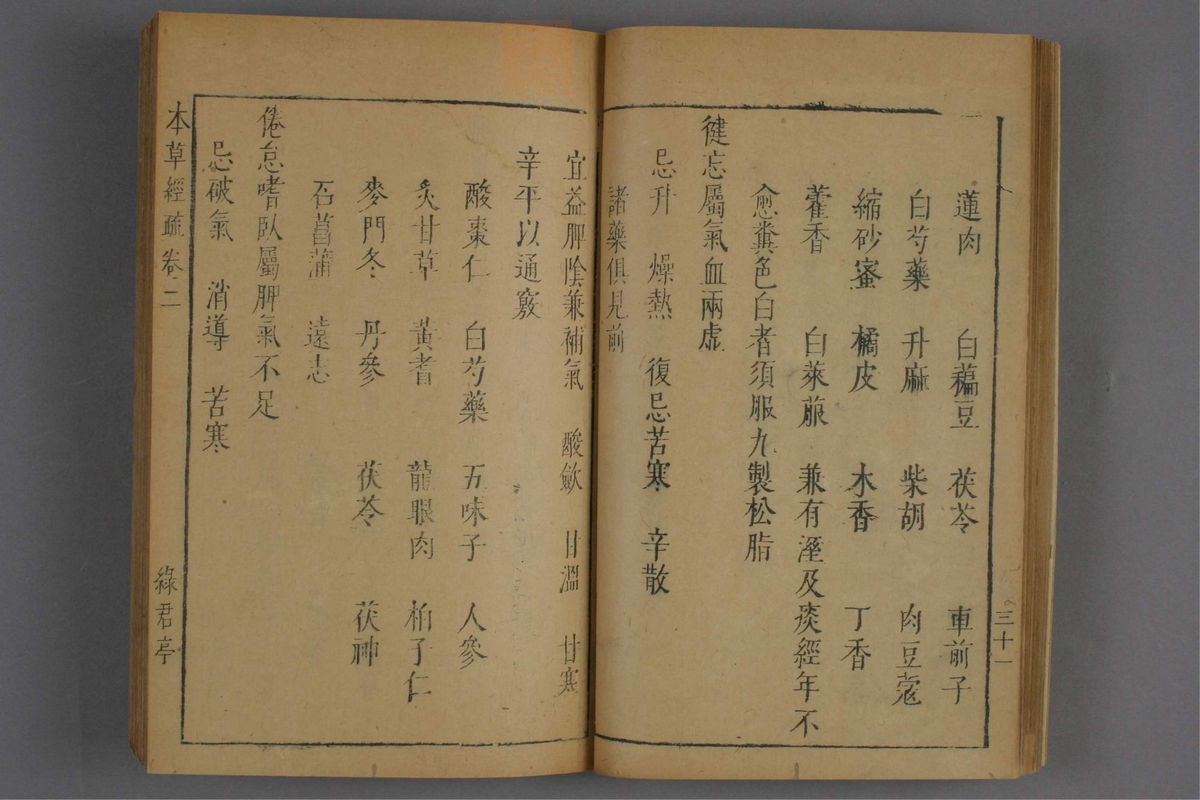 三十一
蓮肉 白藊豆 茯苓 車前子
白芍藥 升麻 柴胡 肉豆蔻
縮砂蜜 橘皮 木香 丁香
藿香 白萊菔 兼有溼及痰經年不
愈糞色白者須服九製松脂
健忘屬氣血兩虛
忌升 燥熱 復忌苦寒 辛散
諸藥俱見前
宜益脾陰兼補氣 酸歛 甘溫 甘寒
辛平以通竅
酸棗仁 白芍藥 五味子 人參
炙甘草 黃耆 龍眼肉 柏子仁
麥門冬 丹參 茯苓 茯神
石菖蒲 遠志
倦怠嗜臥屬脾氣不足
忌破氣 消導 苦寒
本草經疏 卷二 綠君亭